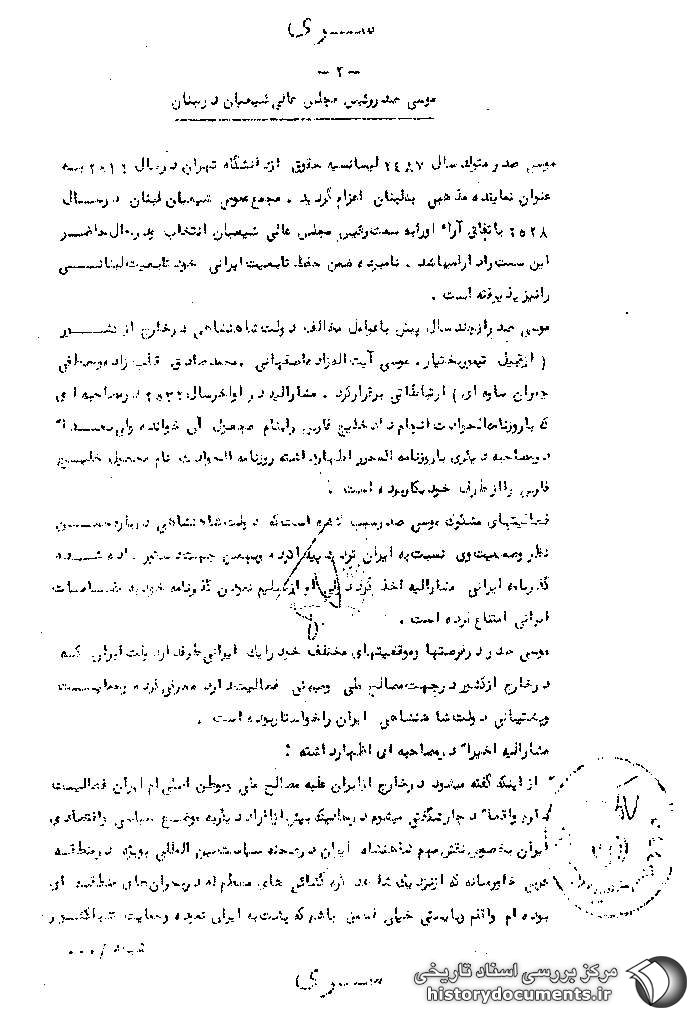 سری
- ۲ -
موسی صدر رئیس مجلس عالی شیعیان در لبنان
موسی صدر متولد سال ۲۴۸۷ لیسانسیه حقوق از دانشگاه تهران در سال به
عنوان نماینده مذهبی به لبنان اعزام گردید . مجمع عمومی شیعیان لبنان در سال
۲۵۲۸ باتفاق آراء اورا به سمت رئیس مجلس عالی شیعیان انتخاب و در حال حاضر
این سمت را دارا میباشد . نامبرده ضمن حفظ تابعیت ایرانی خود تابعیت لبنانی
را نیز پذیرفته است .
موسی صدر از چند سال پیش با عوامل مخالف دولت شاهنشاهی در خارج از کشور
( از قبیل تیمور بختیار ، موسی آیت اله زاده اصفهانی ، محمد صادق قطب زاده مصطفی
چمران ساوه ای ) ارتباطاتی برقرار کرد . مشارالیه در اواخر سال ۲۵۳۲ در مصاحبه ای
که با روزنامه الحوادث انجام داد خلیج فارس را بنام مجعول آن خوانده ولی بعداً
در مصاحبه دیگری با روزنامه المحرر اظهار داشته روزنامه الحوادث نام مجعول خلیج
فارس را از طرف خود بکار برده است .
فعالیتهای مشکوک موسی صدر سبب شده است که دولت شاهنشاهی درباره حسن
نظر و صمیمیت وی نسبت به ایران تردید پیدا کرده و بهمین جهت دستور داده شده
گذرنامه ایرانی مشارالیه اخذ گردد ولی او از تسلیم نمودن گذرنامه خود به مقامات
ایرانی امتناع کرده است .
موسی صدر در فرصتها و موقعیتهای مختلف خود را یک ایرانی طرفدار دولت ایران که
در خارج از کشور در جهت مصالح ملی و میهنی فعالیت دارد معرفی کرده و حمایت
و پشتیبانی دولت شاهنشاهی ایران را خواستار بوده است .
مشارالیه اخیراً در مصاحبه ای اظهار داشته :
" از اینکه گفته میشود در خارج از ایران علیه مصالح ملی و موطن اصلی ام ایران فعالیت
دارم واقعاً دچار شگفتی میشوم در حالیکه بیش از افراد دیگر به موضع سیاسی و اقتصادی
ایران بخصوص نقش مهم شاهنشاه ایران در صحنه سیاست بین المللی بویژه در منطقه
عربی خاورمیانه که از نزدیک شاهد گره گشائی های معظم له در بحران های منطقه ای
بوده ام واقفم و بایستی خیلی باشم که پشت به ایران نموده و حمایت شاه کشور
شیعه / ۰۰۰
سری
مرکز بررسی اسناد تاریخی
historydocuments.ir